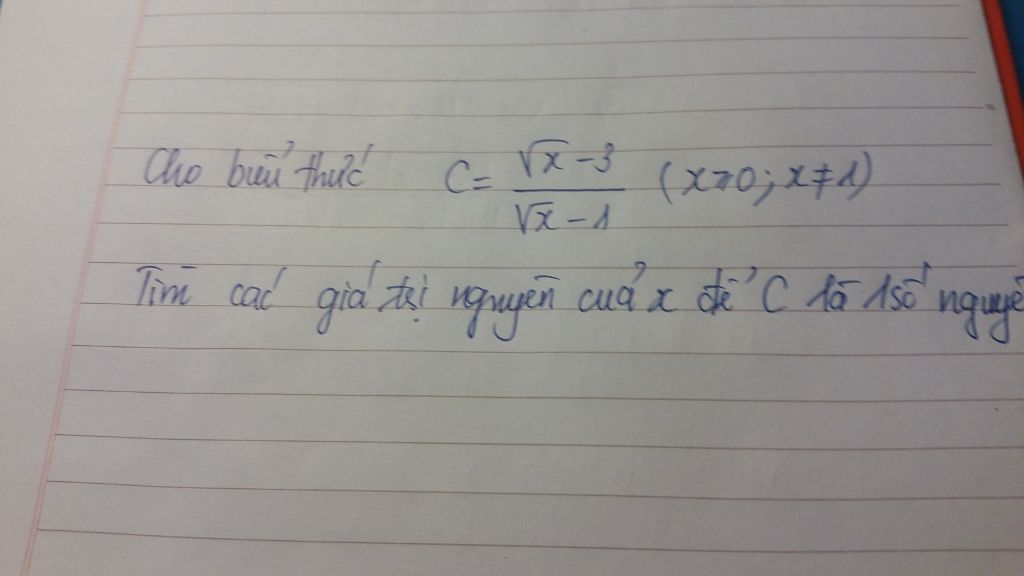 Cho biểu thức C = \frac{\sqrt{x} - 3}{\sqrt{x} - 1} (x ≥ 0; x ≠ 1)
Tìm các giá trị nguyên của x để C là 1 số nguyê